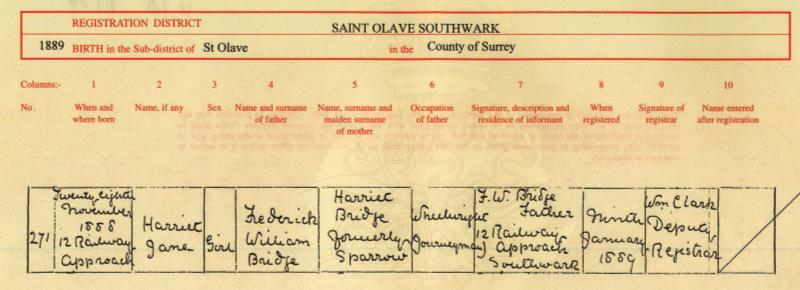 REGISTRATION DISTRICT SAINT OLAVE SOUTHWARK
1889 BIRTH in the Sub-district of St Olave in the County of Surrey
Columns:- 1 2 3 4 5 6 7 8 9 10
No. When and where born Name, if any Sex Name and surname of father Name, surname and maiden surname of mother Occupation of father Signature, description and residence of informant When registered Signature of registrar Name entered after registration
271
Twenty eighth
November
1888
12 Railway
Approach
Harriet
Jane
Girl
Frederick
William
Bridge
Harriet
Bridge
formerly
Sparrow
Wheelwright
Journeyman
F. W. Bridge
Father
12 Railway
Approach
Southwark
Ninth
January
1889
Wm Clark
Deputy
Registrar